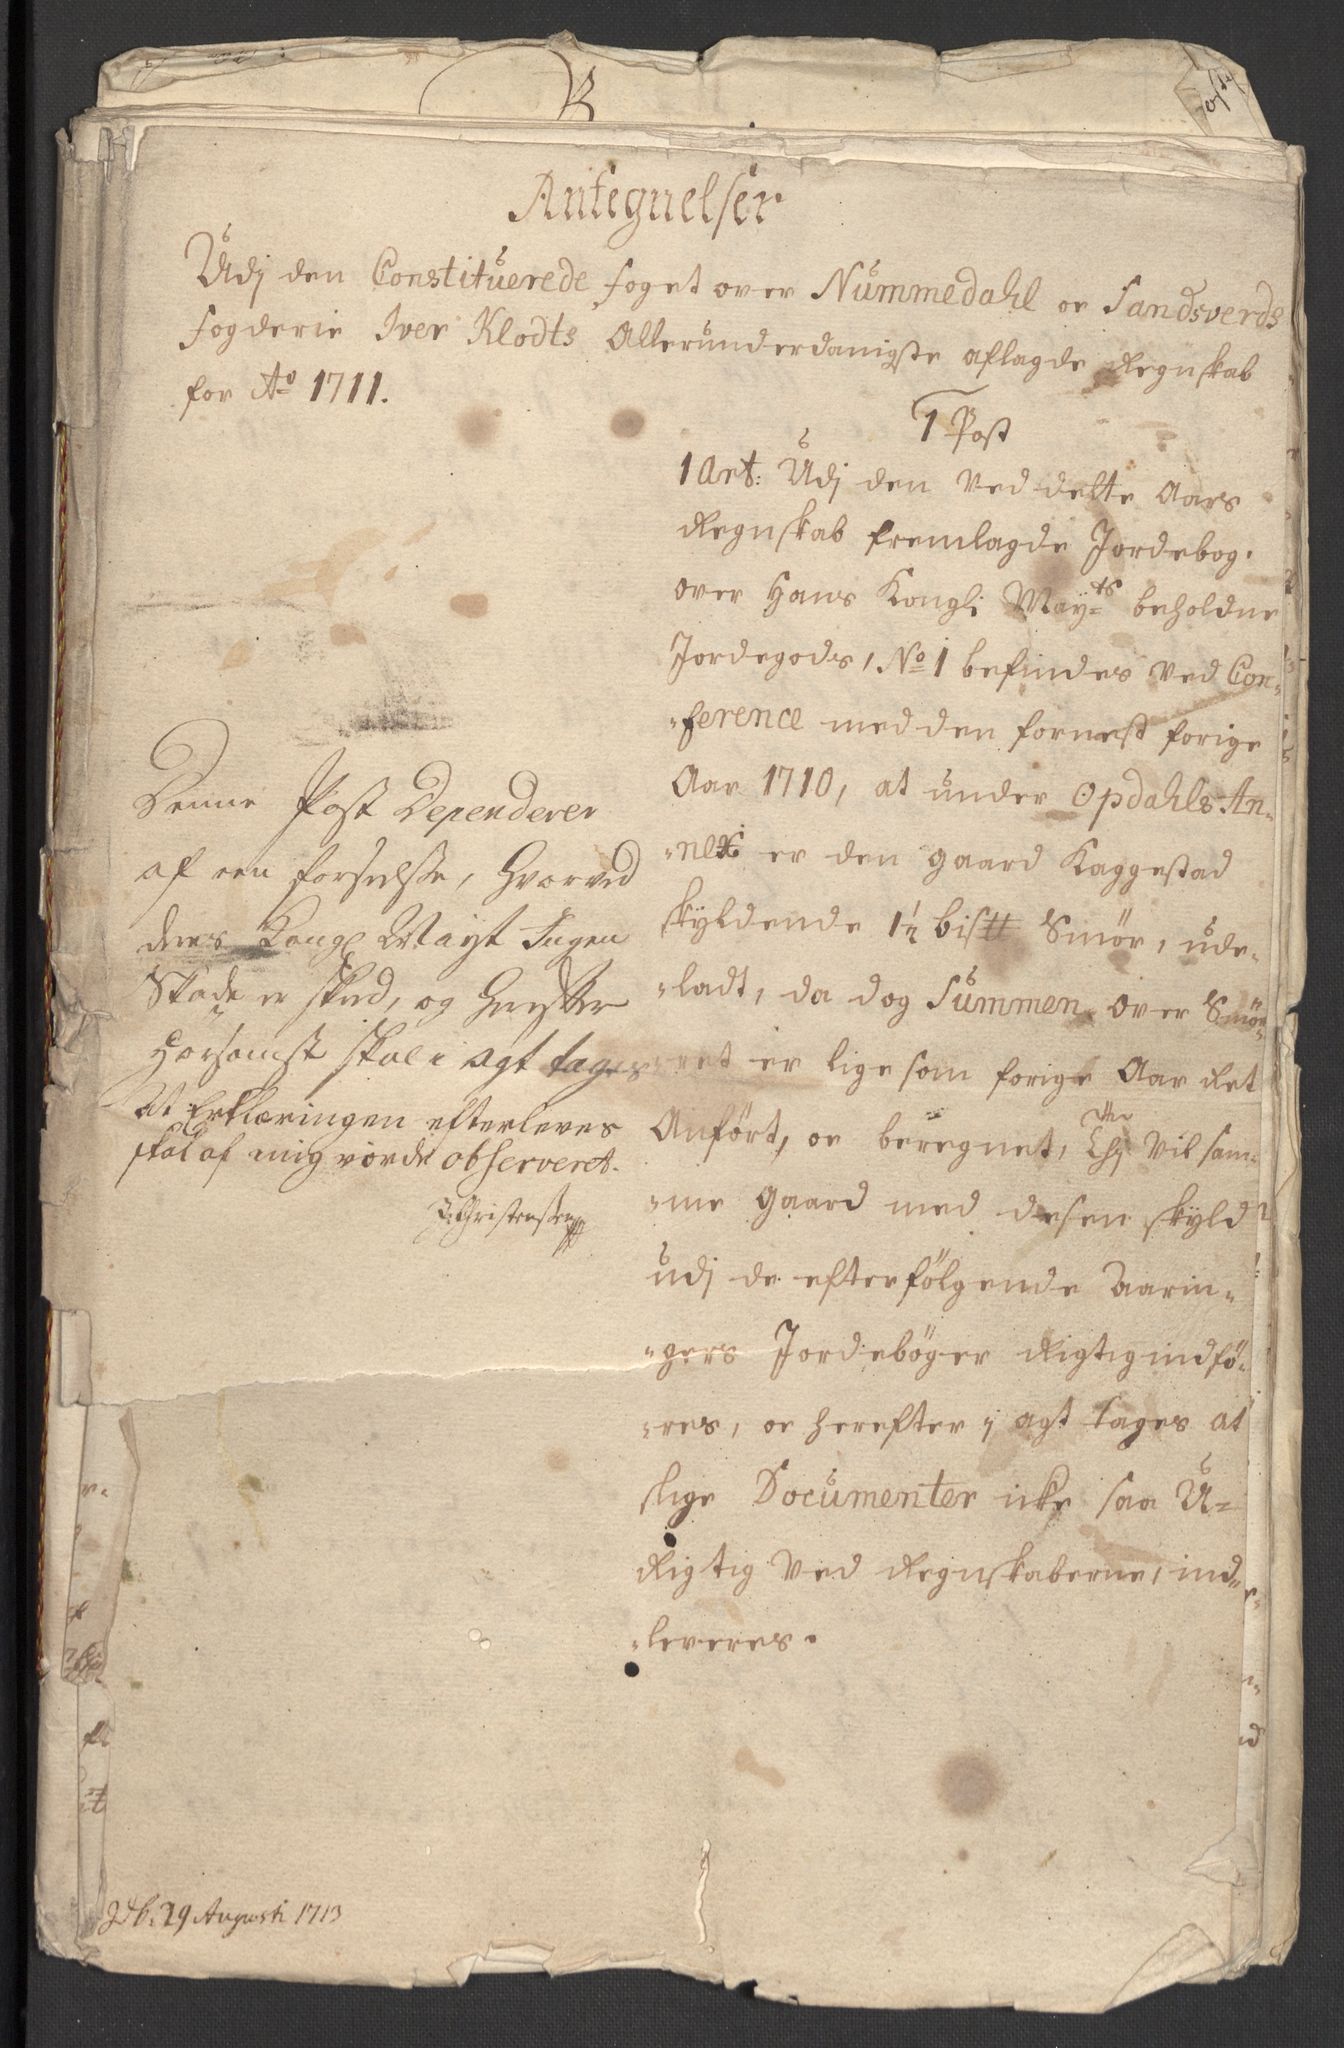 Antegnelser
Udj den Constituerede foget over Nummedahl oc Sandsverds
fogderie Iver Klodts Allerunderdanigste aflagde Regnskab
for Ao 1711.
1 Post
1 Art: Udj den Ved dette Aars
Regnskab fremlagde Jordebog.
over Hans Kongli Mayts beholdne
Jordegods, No 1 befindes ved Con-
ference med den fornest forige
Aar 1710, at under Opdahls An-
nex er den gaard Kaggestad
skyldende 1½ bis℔ Smör, ude-
ladt, da dog Summen over Smö-
ret er lige som forige Aar ret
Anført, oc beregnet, Thj vil sam-
me gaard med desen skyld
udj de efterfölgende Aarin-
gers Jordebøger Rigtig indfö-
res, oc herefter j agt tages at
slige Documenter icke saa U-
Rigtig Ved Regnskaberne, ind-
leveres.
Denne Post Dependerer
af een forseelsse, hvorved
deres Kongl Mayt Ingen
Skade er skeed, og
Hörsomst skal i agt tages
At Erklæringen efterleves
skal af mig vorde observeret.
Christenssen
29 Augusti 1713